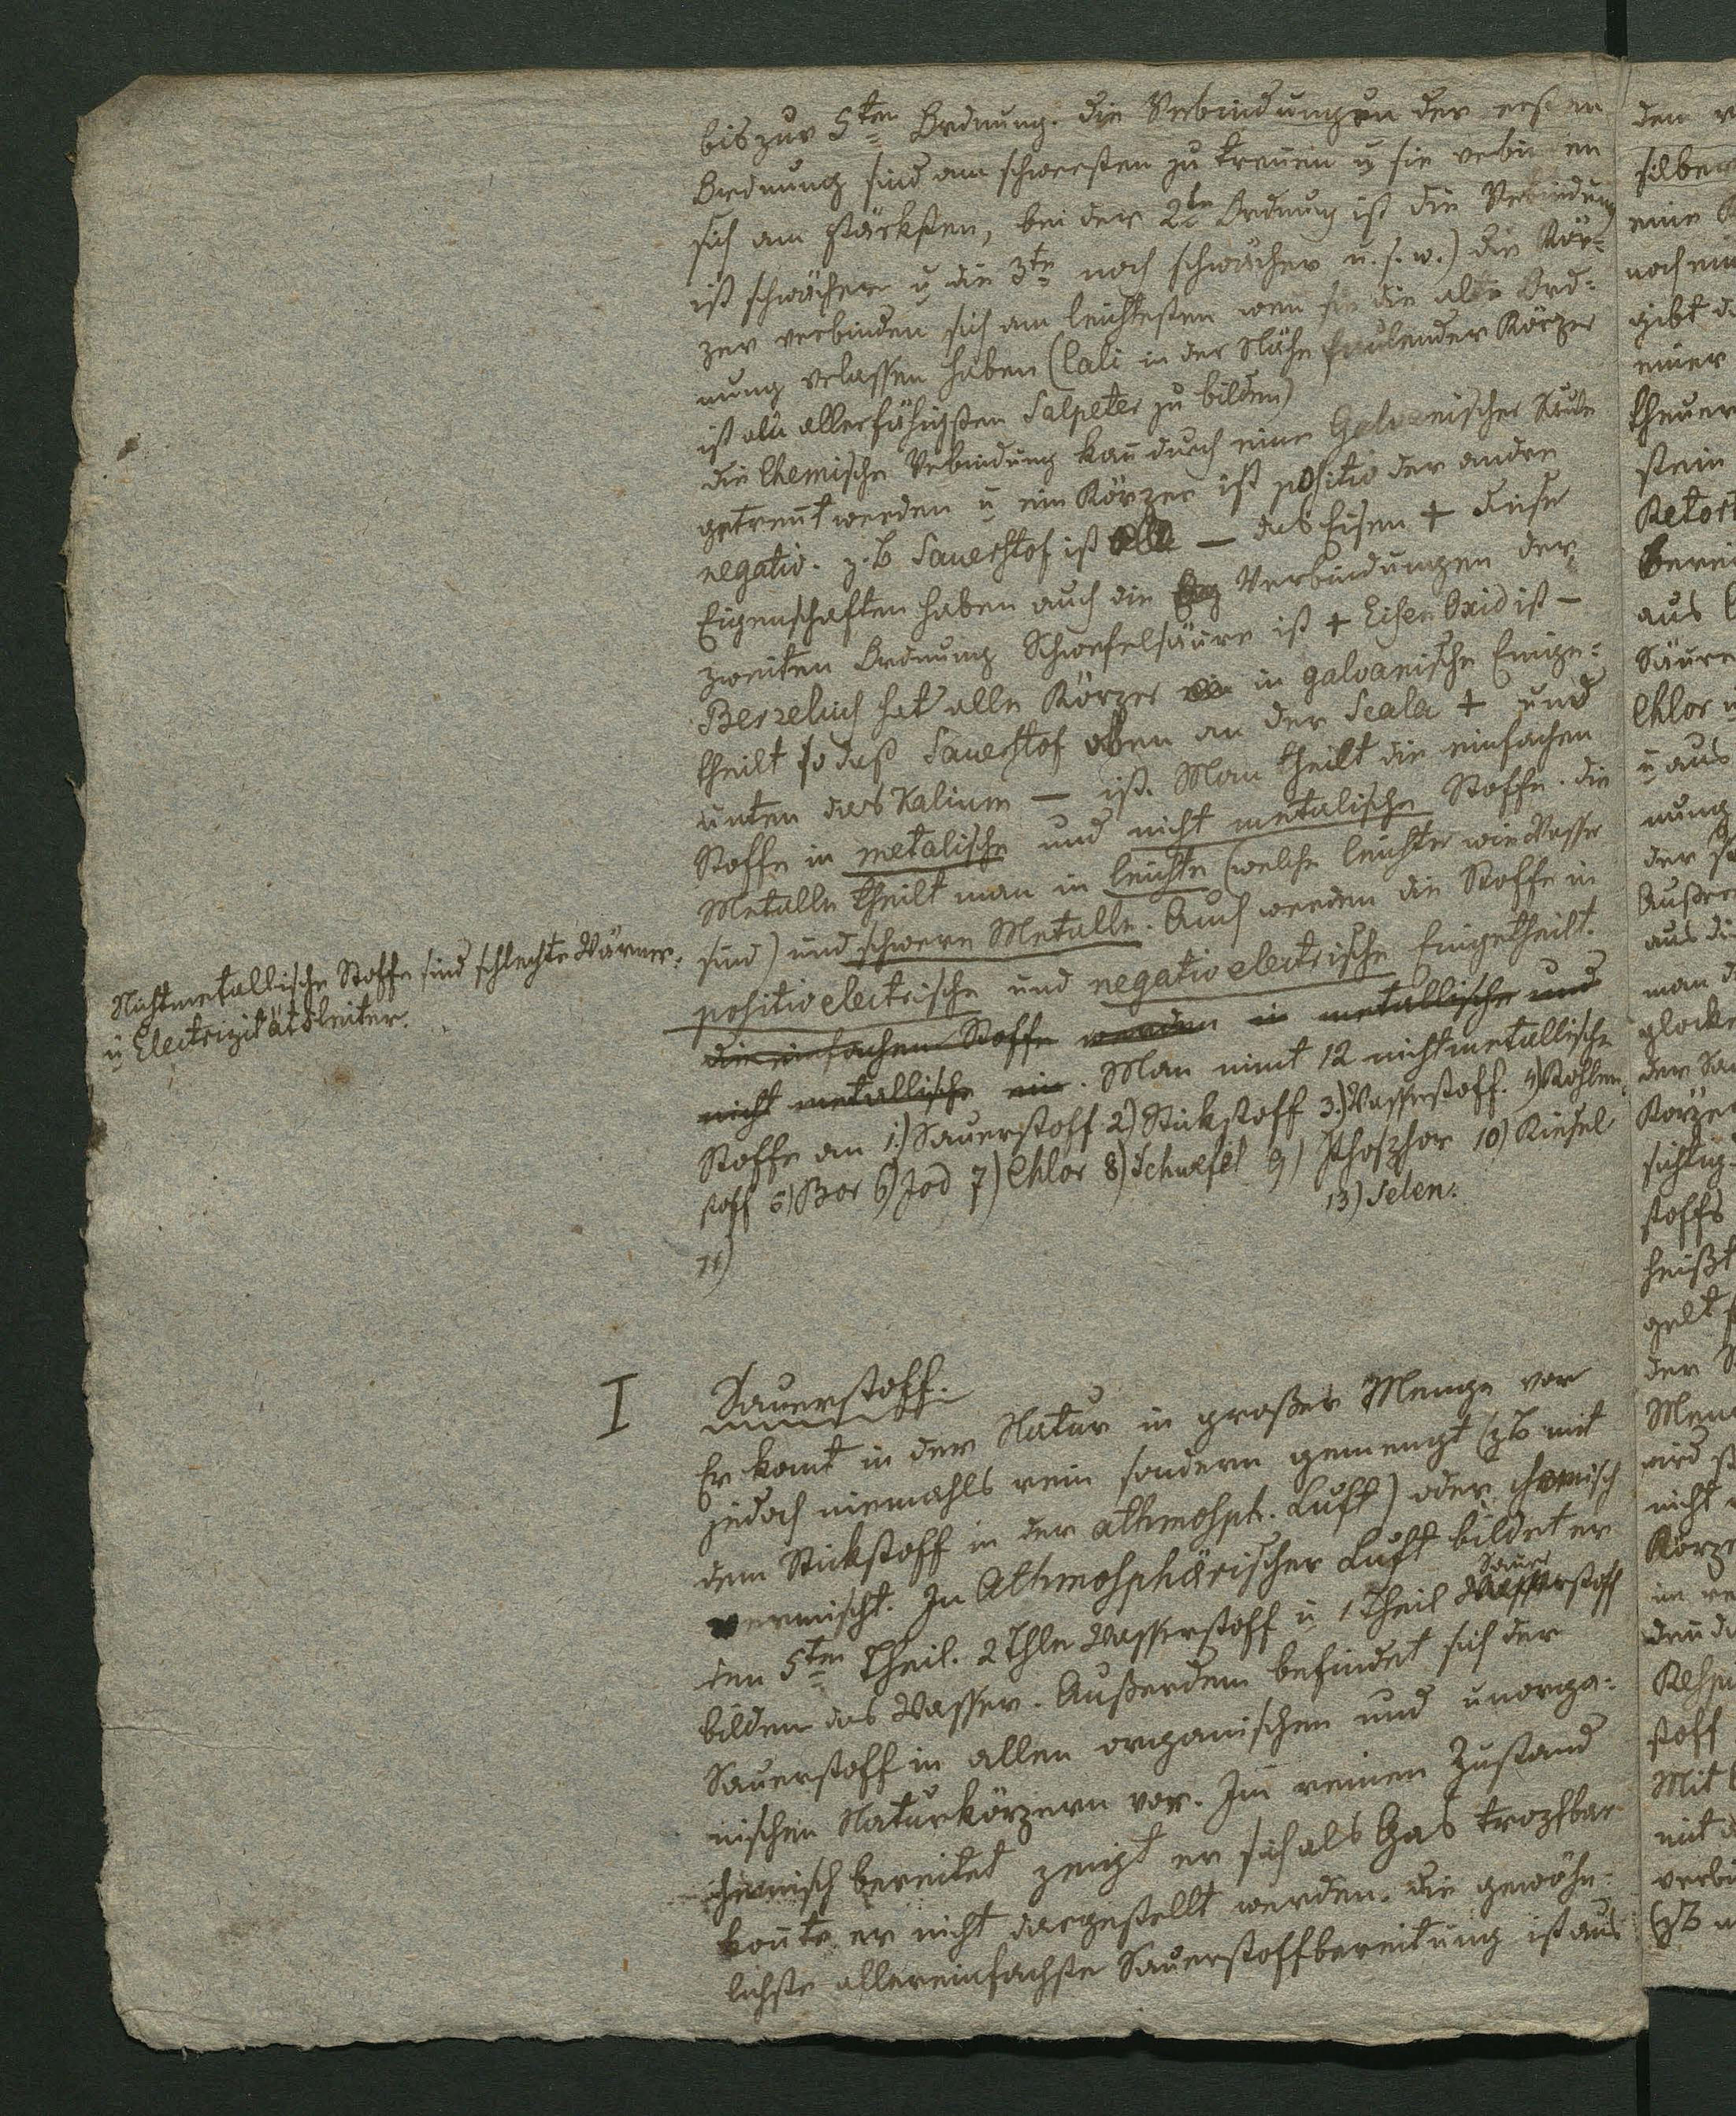 bis zur 5ten Ordnung. die Verbindungen der ersten
Ordnung sind am schwersten zu trennen u sie verbinden
sich am stärksten, bei der 2ten Ordnung ist die Verbindung
ist schwächer u die 3te noch schwächer u. s. w.) die Kör-
per verbinden sich am leichtesten wen sie die alte Ord-
nung verlassen haben (Cali in der Nähe faulender Körper
ist am allerfähigsten Salpeter zu bilden)
die Chemische Verbindung kan durch eine Galvanische Säule
getrent werden u ein Körper ist positiv der andre
negativ. z. B Sauerstof ist — das Eisen + diese
Eigenschaften haben auch die Verbindungen der
zweiten Ordnung Schwefelsäure ist + Eisen Oxid ist —
Berzelius hat alle Körper in galvanische Einge-
theilt so daß Sauerstof oben an der Scala + und
unten das Kalium — ist. Man theilt die einfachen
Stoffe in metalische und nicht metalische Stoffe. die
Metalle theilt man in leichte (welche leichter wie Wasser
sind) und schwere Metalle. Auch werden die Stoffe in
positivelectrische und negativelectrische Eingetheilt.
die einfachen Stoffe werden in metallische und
nicht metallische ein. Man nimt 12 nichtmetallische
Stoffe an 1) Sauerstoff 2) Stickstoff 3.) Wasserstoff. 4) Kohlen-
stoff 5) Bor 6) Jod 7) Chlor 8) Schwefel 9) Phosphor 10) Kiesel
11) 13) Selen.
Nichtmetallische Stoffe sind schlechte Wärme-
u Electrizitätsleiter.
I Sauerstoff.
Er komt in der Natur in großer Menge vor
jedoch niemahls rein sondern gemengt (z B mit
dem Stickstoff in der athmosph. Luft) oder chemisch
vermischt. In Athmosphärischer Luft bildet er
den 5ten Theil. 2 Thle Wasserstoff u 1 Theil Sauerstoff
bilden das Wasser. Außerdem befindet sich der
Sauerstoff in allen organischen und unorga-
nischen Naturkörpern vor. Im reinen Zustand
chemisch bereitet zeigt er sich als Gas tropfbar
konte er nicht dargestellt werden. die gewöhn-
lichste allereinfachste Sauerstoffbereitung ist aus
den
silber
eine
noch
gibt
einer
theuer
stein
Retort
berei
aus
Säure
Chlor
u aus
nung
der
Außer
aus
man
glocke
der
Körper
sichtig
stoffs
heißt
gelt
der
Men
wird
nicht
Körpe
im
den
stoff
Mit
mit
verbi
(z B